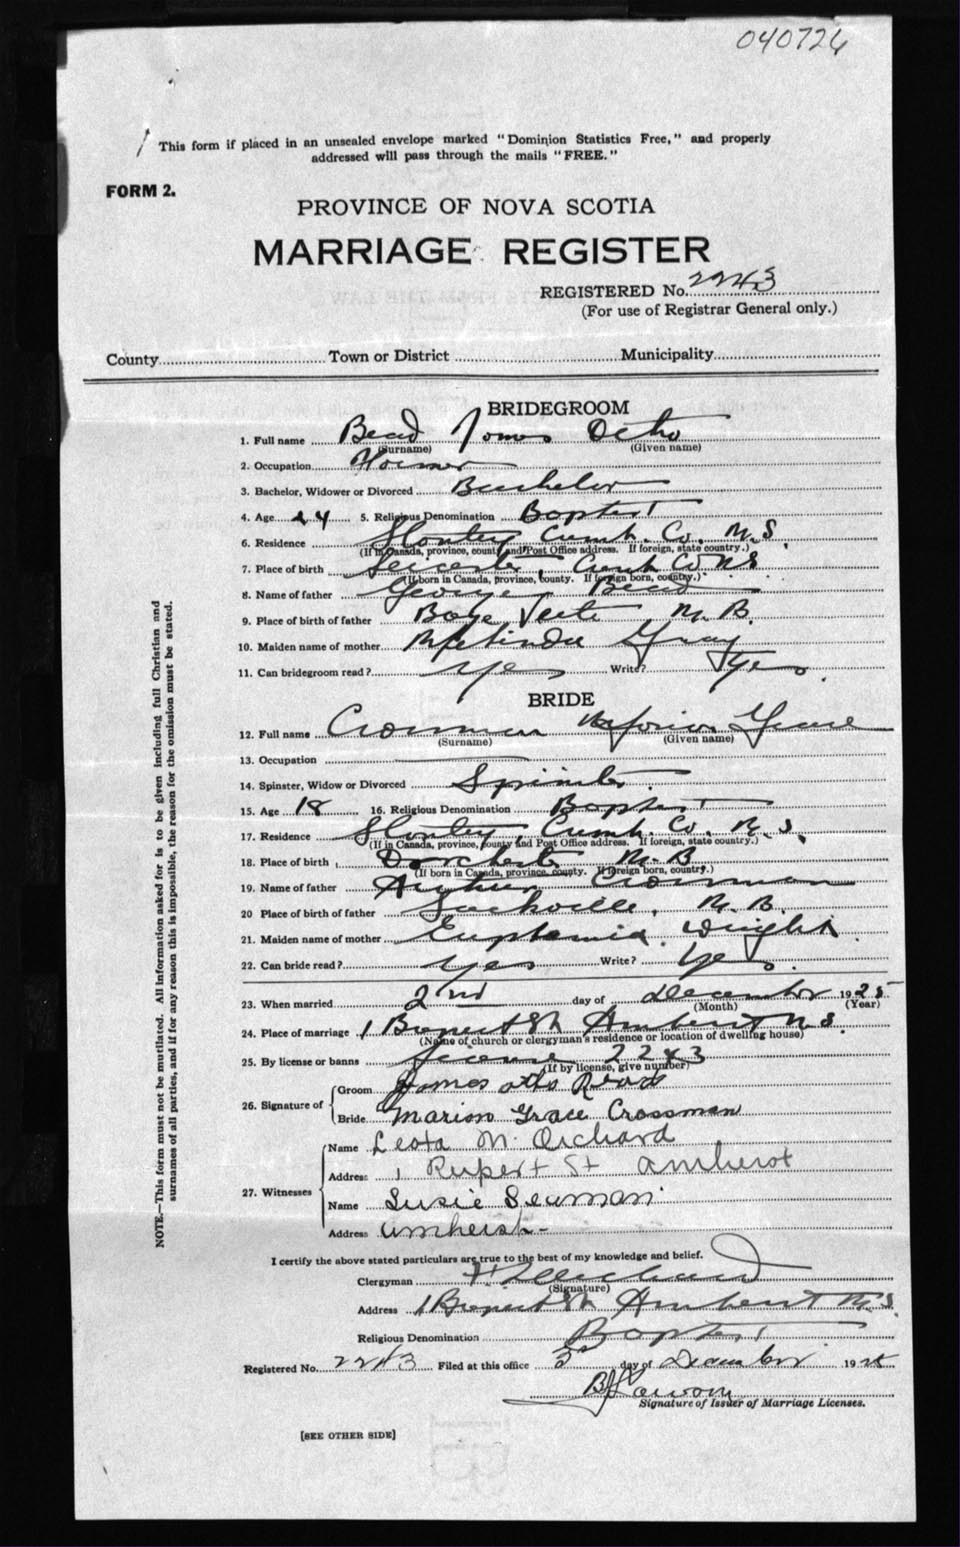 040726
This form if placed in an unsealed envelope marked "Dominion Statistics Free," and properly
addressed will pass through the mails "FREE."
FORM 2.
PROVINCE OF NOVA SCOTIA
MARRIAGE REGISTER
REGISTERED No. 2243
(For use of Registrar General only.)
County Town or District Municipality
BRIDEGROOM
1. Full name Read James Otho
(Surname) (Given name)
2. Occupation Farmer
3. Bachelor, Widower or Divorced Bachelor
4. Age 24 5. Religious Denomination Baptist
6. Residence Stanley Cumb. Co. N.S.
(If in Canada, province, county and Post Office address. If foreign, state country.)
7. Place of birth Leicester, Cumb Co NS
(If born in Canada, province, county. If foreign born, country.)
8. Name of father George Read
9. Place of birth of father Baye Verte N.B.
10. Maiden name of mother Melinda Gray
11. Can bridegroom read? Yes Write? Yes
BRIDE
12. Full name Crossman Marion Grace
(Surname) (Given name)
13. Occupation
14. Spinster, Widow or Divorced Spinster
15. Age 18 16. Religious Denomination Baptist
17. Residence Stanley, Cumb. Co. N.S.
(If in Canada, province, county and Post Office address. If foreign, state country.)
18. Place of birth Dorchester N.B
(If born in Canada, province, county. If foreign born, country.)
19. Name of father Arthur Crossman
20 Place of birth of father Sackville, N.B.
21. Maiden name of mother Euphemia Wright
22. Can bride read? Yes Write? Yes
23. When married 2nd day of December 1925
(Month) (Year)
24. Place of marriage 1 Rupert St Amherst N.S.
(Name of church or clergyman's residence or location of dwelling house)
25. By license or banns License 2243
(If by license, give number)
26. Signature of Groom James Otho Read
Bride Marion Grace Crossman
27. Witnesses Name Leota M. Orchard
Address 1 Rupert St Amherst
Name Susie Seaman
Address Amherst
I certify the above stated particulars are true to the best of my knowledge and belief.
Clergyman Orchard
(Signature)
Address 1 Rupert St Amherst N.S.
Religious Denomination Baptist
Registered No. 2243 Filed at this office 3 day of December 1925
Signature of Issuer of Marriage Licenses.
[SEE OTHER SIDE]
NOTE.—This form must not be mutilated. All information asked for is to be given including full Christian and
surnames of all parties, and if for any reason this is impossible, the reason for the omission must be stated.